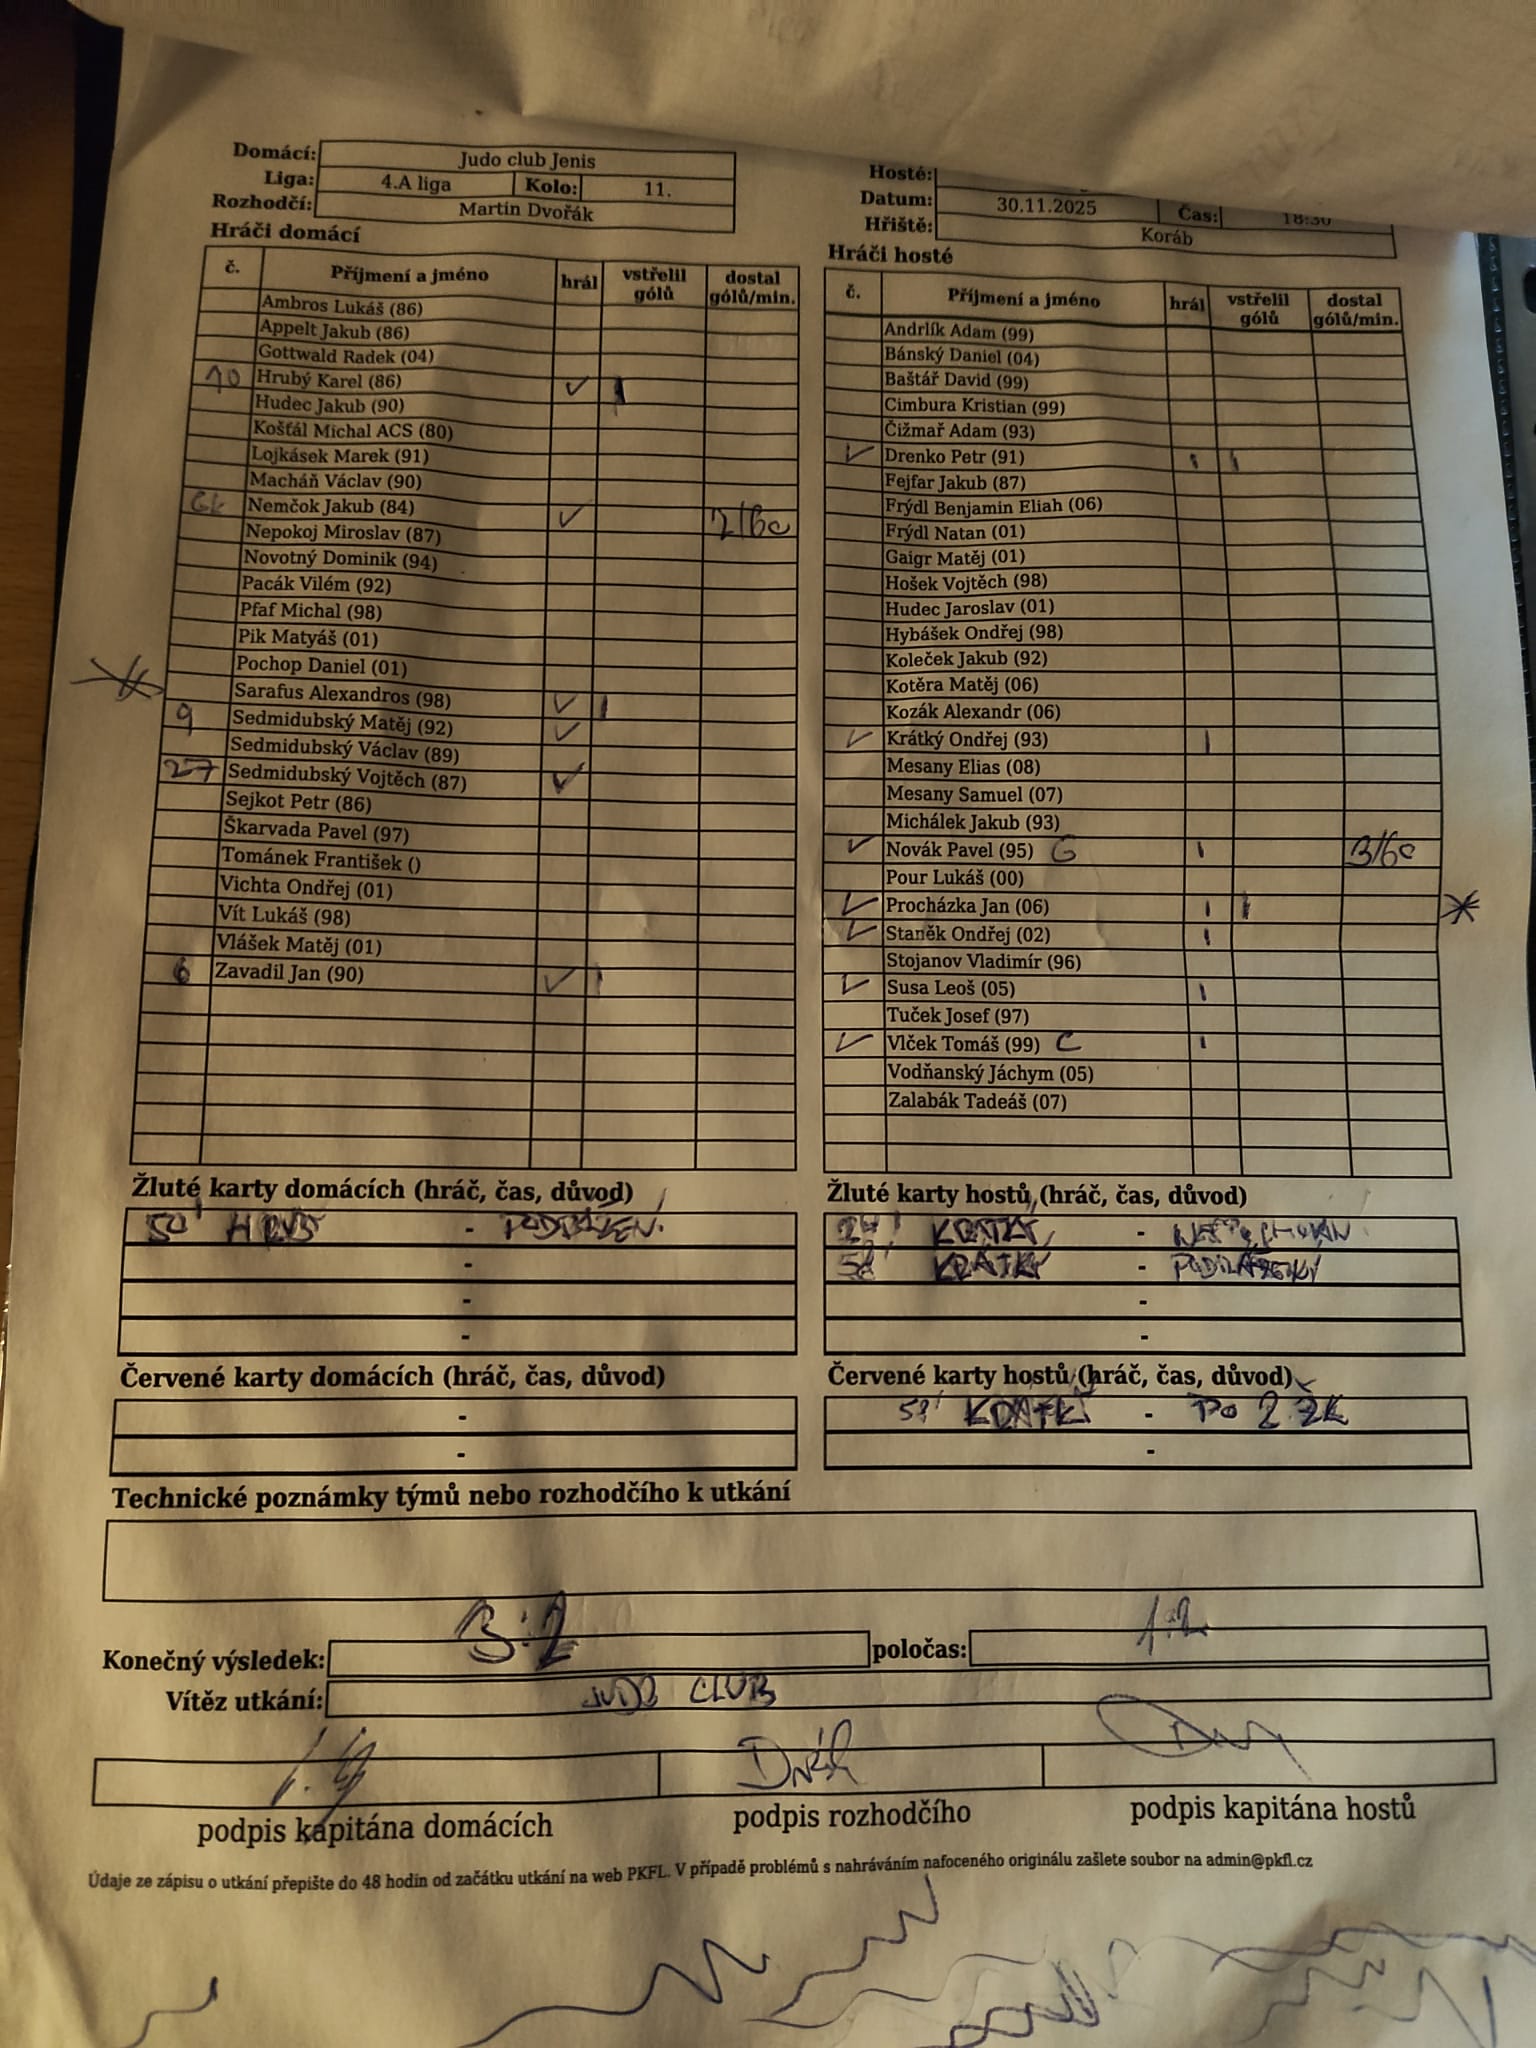 Domácí: Judo club Jenis
Liga: 4.A liga Kolo: 11.
Rozhodčí: Martin Dvořák
Hosté:
Datum: 30.11.2025 Čas: 18:30
Hřiště: Koráb
Hráči domácí
č. Příjmení a jméno hrál vstřelil gólů dostal gólů/min.
Ambros Lukáš (86)
Appelt Jakub (86)
Gottwald Radek (04)
10 Hrubý Karel (86) ✓ I
Hudec Jakub (90)
Košťál Michal ACS (80)
Lojkásek Marek (91)
Macháň Václav (90)
GK Nemčok Jakub (84) ✓ 2/60
Nepokoj Miroslav (87)
Novotný Dominik (94)
Pacák Vilém (92)
Pfaf Michal (98)
Pik Matyáš (01)
Pochop Daniel (01)
Sarafus Alexandros (98) ✓ I
9 Sedmidubský Matěj (92) ✓
Sedmidubský Václav (89)
27 Sedmidubský Vojtěch (87) ✓
Sejkot Petr (86)
Škarvada Pavel (97)
Tománek František ()
Vichta Ondřej (01)
Vít Lukáš (98)
Vlášek Matěj (01)
6 Zavadil Jan (90) ✓ I
Hráči hosté
č. Příjmení a jméno hrál vstřelil gólů dostal gólů/min.
Andrlík Adam (99)
Bánský Daniel (04)
Baštář David (99)
Cimbura Kristian (99)
Čižmař Adam (93)
✓ Drenko Petr (91) I I
Fejfar Jakub (87)
Frýdl Benjamin Eliah (06)
Frýdl Natan (01)
Gaigr Matěj (01)
Hošek Vojtěch (98)
Hudec Jaroslav (01)
Hybášek Ondřej (98)
Koleček Jakub (92)
Kotěra Matěj (06)
Kozák Alexandr (06)
✓ Krátký Ondřej (93) I
Mesany Elias (08)
Mesany Samuel (07)
Michálek Jakub (93)
✓ Novák Pavel (95) G I 3/60
Pour Lukáš (00)
✓ Procházka Jan (06) I I
✓ Staněk Ondřej (02) I
Stojanov Vladimír (96)
✓ Susa Leoš (05) I
Tuček Josef (97)
✓ Vlček Tomáš (99) C I
Vodňanský Jáchym (05)
Zalabák Tadeáš (07)
Žluté karty domácích (hráč, čas, důvod)
50' HRUBÝ - PODRÁŽENÍ
-
-
-
Žluté karty hostů (hráč, čas, důvod)
KRÁTKÝ -
58' KRÁTKÝ - PODRÁŽENÍ
-
-
Červené karty domácích (hráč, čas, důvod)
-
-
Červené karty hostů (hráč, čas, důvod)
58' KRÁTKÝ - PO 2 ŽK
-
Technické poznámky týmů nebo rozhodčího k utkání
Konečný výsledek: 3:2 poločas: 1:2
Vítěz utkání: JUDO CLUB
podpis kapitána domácích podpis rozhodčího podpis kapitána hostů
Údaje ze zápisu o utkání přepište do 48 hodin od začátku utkání na web PKFL. V případě problémů s nahráváním nafoceného originálu zašlete soubor na admin@pkfl.cz